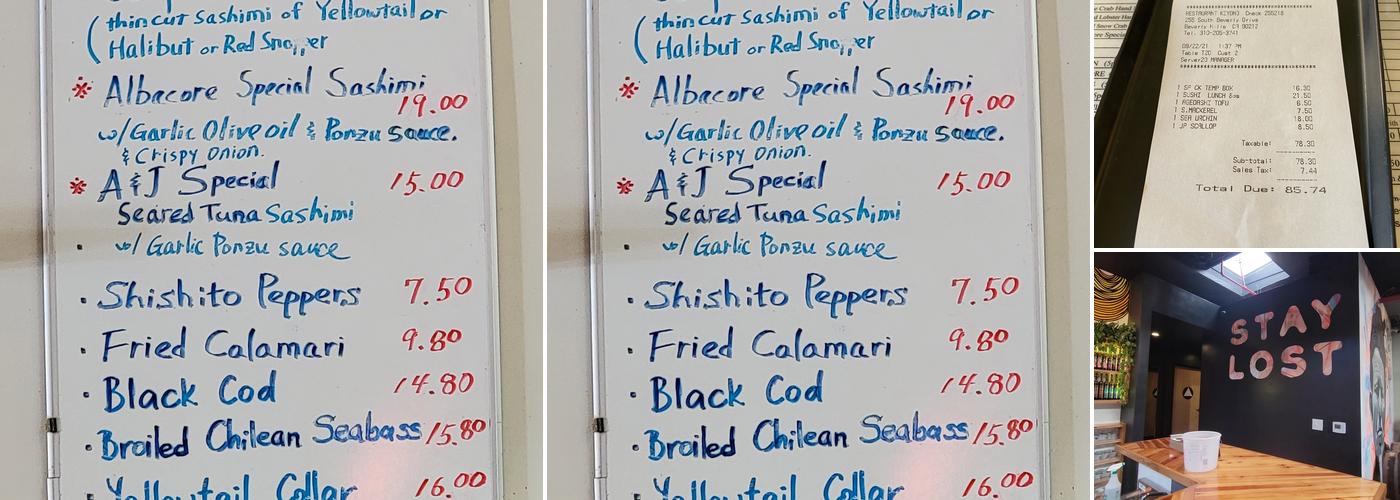 (thin cut Sashimi of Yellowtail or
Halibut or Red Snapper
※ Albacore Special Sashimi
19.00
w/Garlic Olive oil & Ponzu sauce.
& Crispy Onion.
※ A&J Special 15.00
Seared Tuna Sashimi
w/ Garlic Ponzu sauce
· Shishito Peppers 7.50
· Fried Calamari 9.80
· Black Cod 14.80
· Broiled Chilean Seabass 15.80
· Yellowtail Collar 16.00
(thin cut Sashimi of Yellowtail or
Halibut or Red Snapper
※ Albacore Special Sashimi
19.00
w/Garlic Olive oil & Ponzu sauce.
& Crispy Onion.
※ A&J Special 15.00
Seared Tuna Sashimi
w/ Garlic Ponzu sauce
· Shishito Peppers 7.50
· Fried Calamari 9.80
· Black Cod 14.80
· Broiled Chilean Seabass 15.80
· Yellowtail Collar 16.00
RESTAURANT KIYONO Check 255218
255 South Beverly Drive
Beverly Hills CA 90212
Tel. 310-205-3741
09/22/21 1:37 PM
Table T20 Cust 2
Server20 MANAGER
1 SP CK TEMP BOX 16.30
1 SUSHI LUNCH 21.50
1 AGEDASHI TOFU 6.50
1 S.MACKEREL 7.50
1 SEA URCHIN 18.00
1 JP SCALLOP 8.50
Taxable: 78.30
Sub-total: 78.30
Sales Tax: 7.44
Total Due: 85.74
STAY
LOST